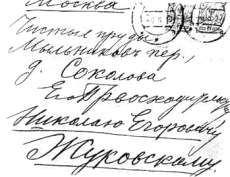 Москва
Чистые пруды.
Мыльников пер.,
д. Соколова
Его Превосходительству
Николаю Егоровичу
Жуковскому.